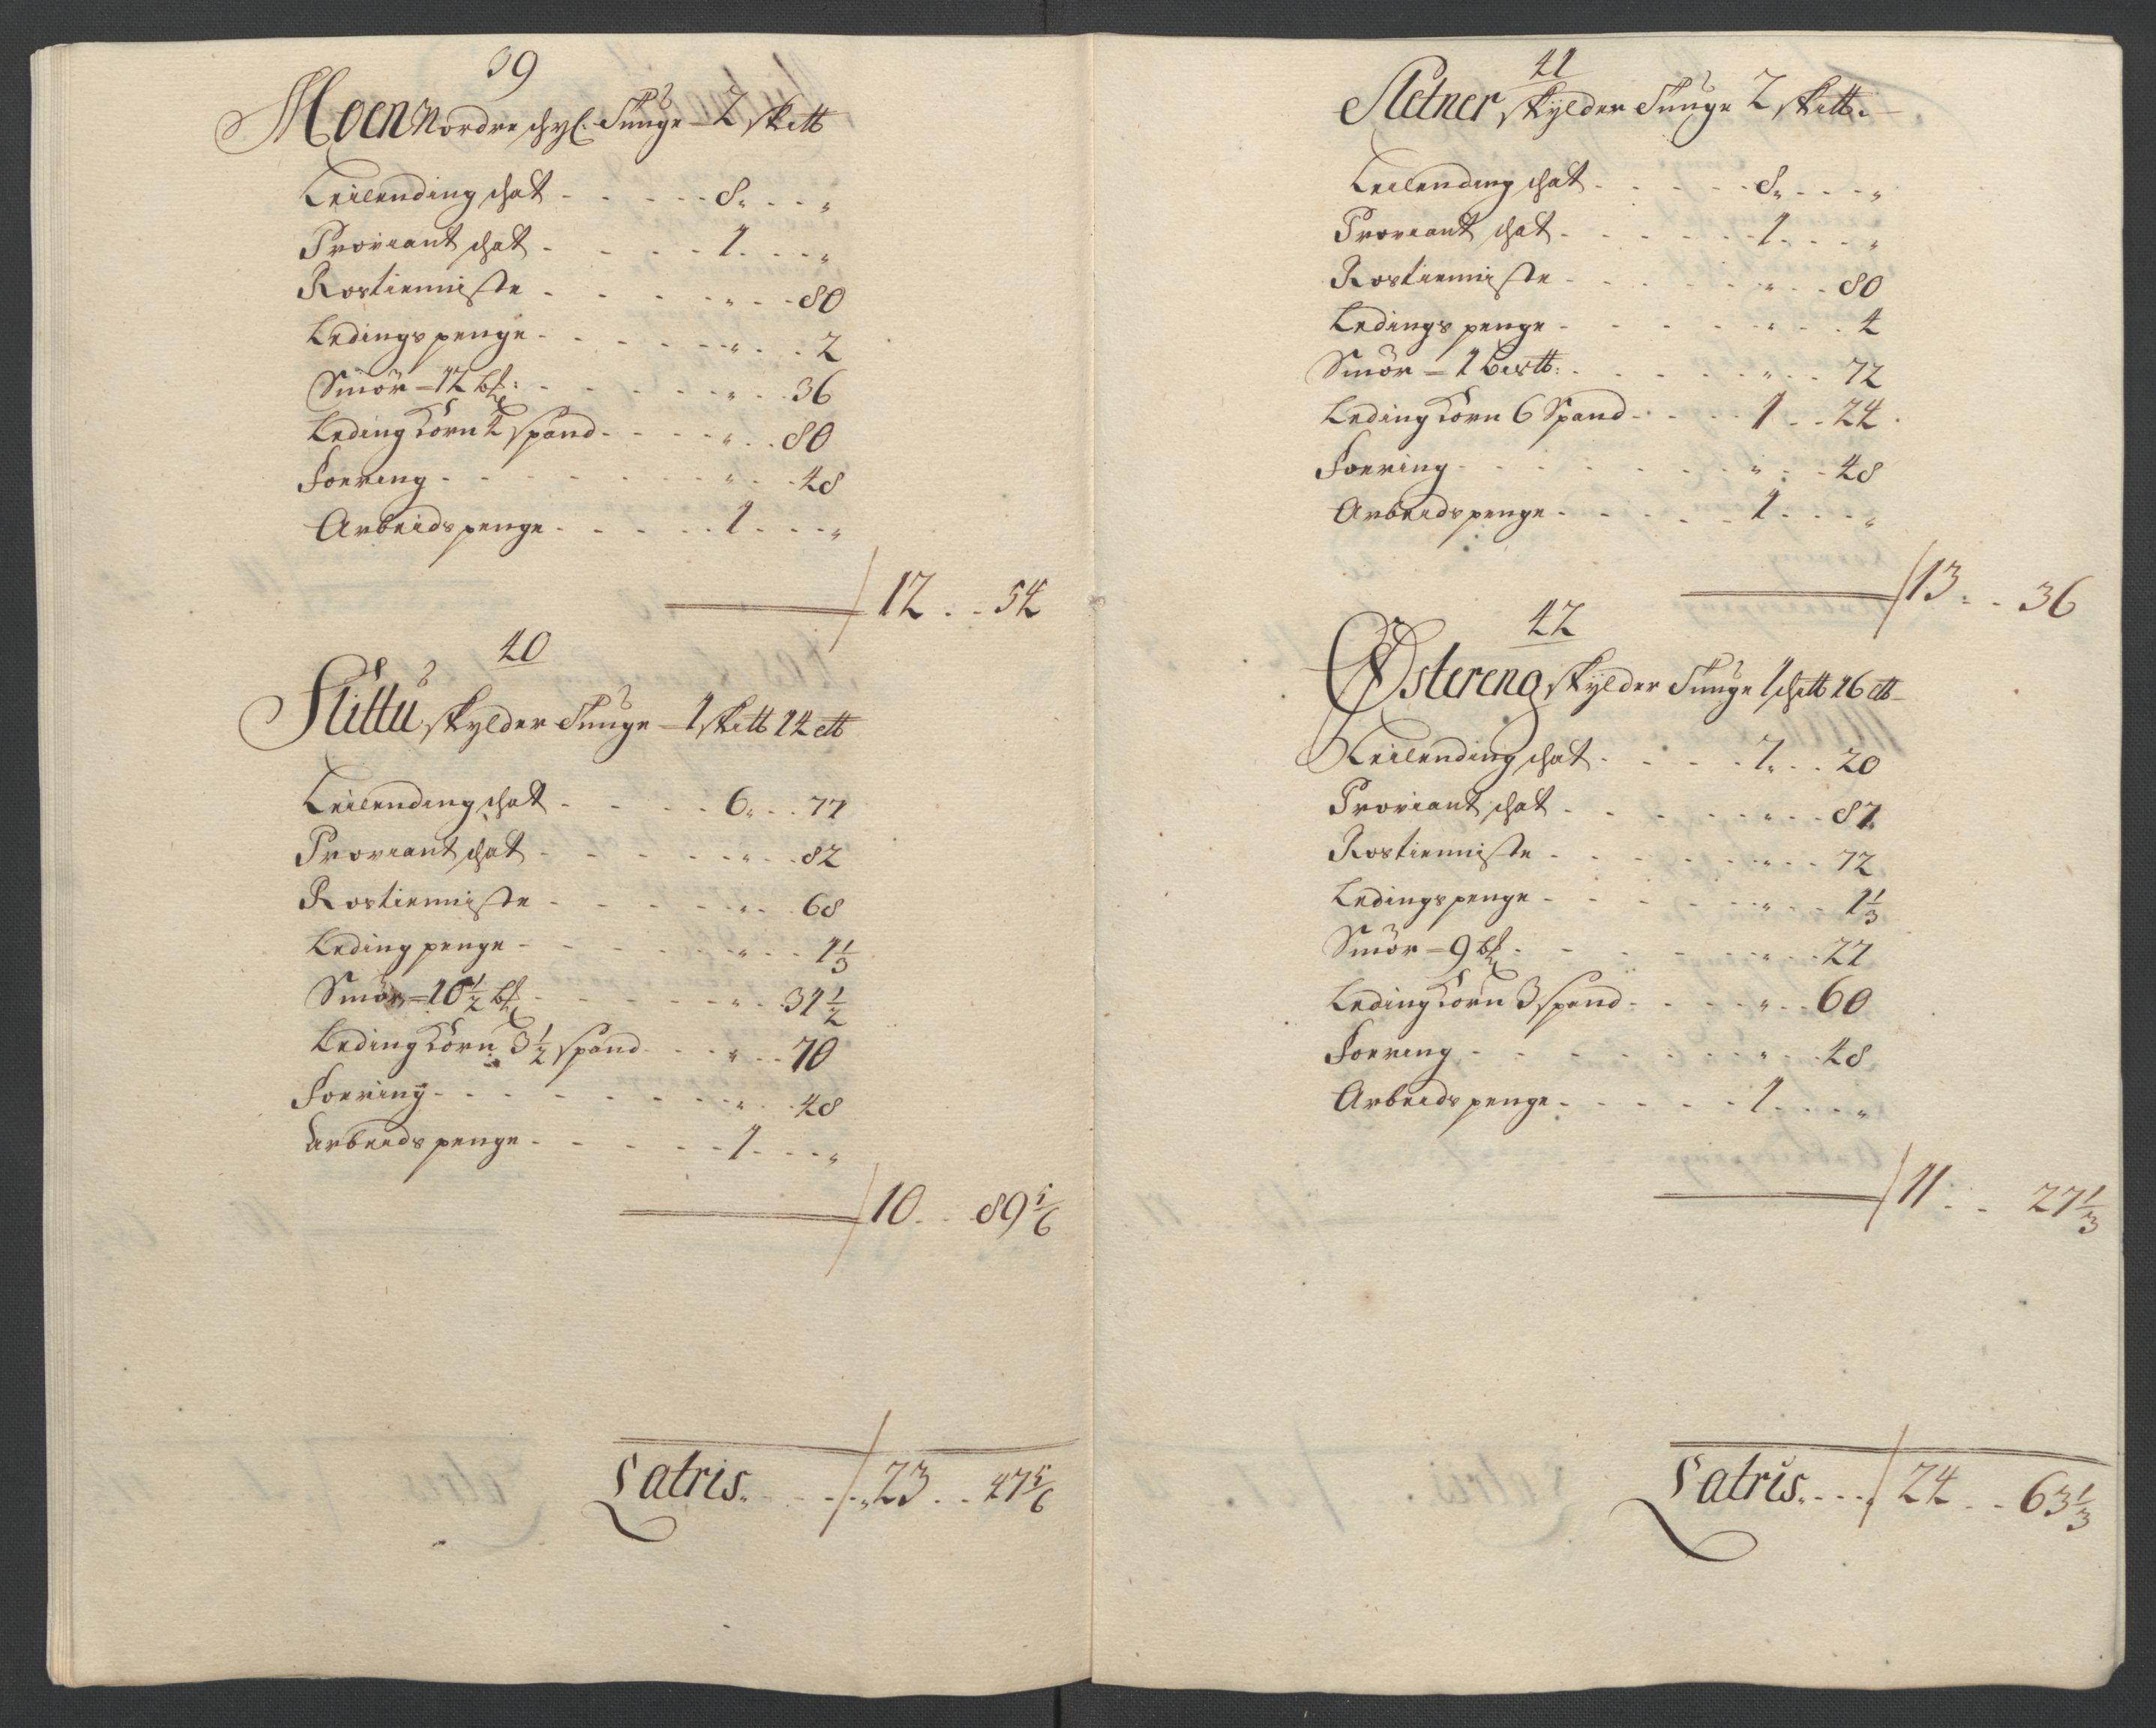 39
Moen Nordre schyl. Tunge 2 skett
Leilending schat - - - - - 8 „ - - „
Proviant schat - - - - - 1 - - - „
Rostienniste - - - - - „ - - 80
Ledingspenge - - - - - „ - - 2
Smör - 12 - - - - - „ - - 36
Leding Korn 4 spand - - - - „ - - 80
Foering - - - - - - - „ - - 48
Arbeidspenge - - - - - 1 - - - „
12 - - 54
40
Slittu skylder Tunge - 1 skett 14
Leilending schat - - - - 6 „ - - 77
Proviant schat - - - - - „ - - 82
Rostienniste - - - - - „ - - 68
Leding penge - - - - - „ - - 1 1/3
Smör = 10 1/2 - - - - - „ - - 31 1/2
Leding Korn 3 1/2 spand - - - „ - - 70
Foering - - - - - - - „ - - 48
Arbeids penge - - - - - 1 - - - „
10 - - 89 5/6
Latris - - - - 23 - - 47 5/6
41
Sletner skylder Tunge 2 skett.
Leilending schat - - - - - 8 „ - - „
Proviant schat - - - - - - 1 - - - „
Rostienniste - - - - - - „ - - 80
Ledings penge - - - - - „ - - 4
Smör - 1 - - - - - „ - - 72
Leding Korn 6 Spand - - - - 1 - - 24
Foering - - - - - - - „ - - 48
Arbeids penge - - - - - 1 - - - „
13 - - 36
42
Østereng skylder Tunge 1 schett 16
Leilending schat - - - - 7 „ - - 20
Proviant schat - - - - - „ - - 87
Rostienniste - - - - - „ - - 72
Ledingspenge - - - - - „ - - 1 1/3
Smör - 9 - - - - - „ - - 27
Leding Korn 3 spand - - - - „ - - 60
Foering - - - - - - - „ - - 48
Arbeids penge - - - - - 1 - - - „
11 - - 27 1/3
Latris - - - - 24 - - 63 1/3